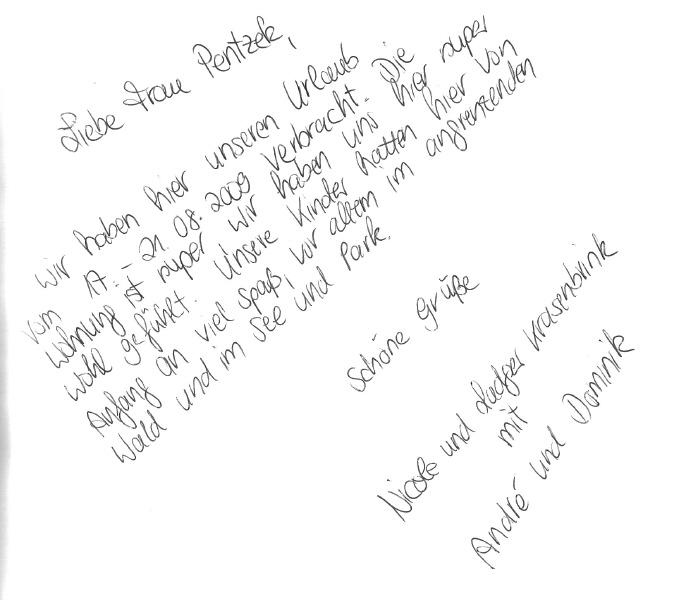 Liebe Frau Pentzek,
wir haben hier unseren Urlaub
vom 17. - 21.08.2009 verbracht. Die
Wohnung ist super wir haben uns hier super
wohl gefühlt. Unsere Kinder hatten hier von
Anfang an viel spaß, vor allem im angrenzenden
Wald und im See und Park.
Schöne Grüße
Nicole und Ludger Krasenbrink
mit
André und Dominik